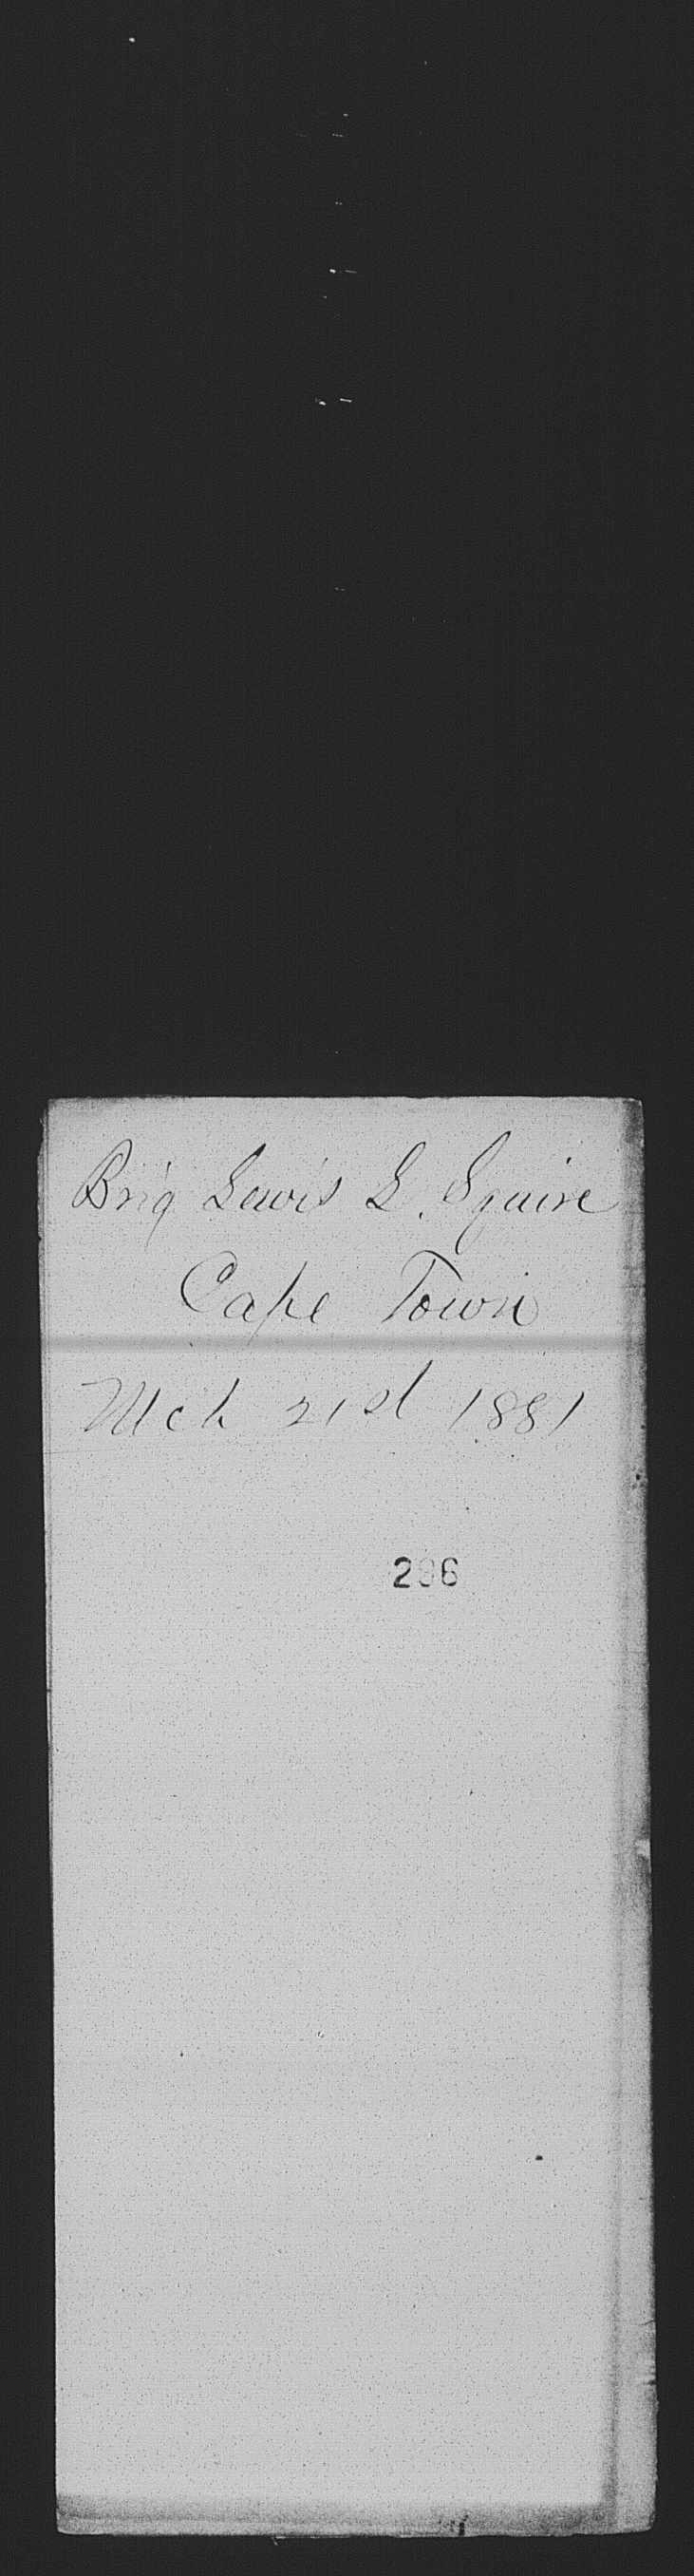 Brig Lewis L. Squire
Cape Town
Mch 21st 1881
296